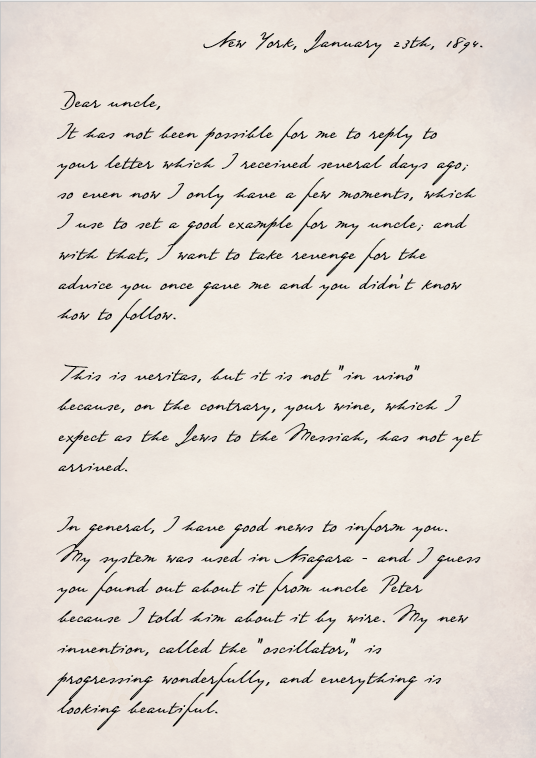 New York, January 23th, 1894.
Dear uncle,
It has not been possible for me to reply to
your letter which I received several days ago;
so even now I only have a few moments, which
I use to set a good example for my uncle; and
with that, I want to take revenge for the
advice you once gave me and you didn't know
how to follow.
This is veritas, but it is not "in vino"
because, on the contrary, your wine, which I
expect as the Jews to the Messiah, has not yet
arrived.
In general, I have good news to inform you.
My system was used in Niagara - and I guess
you found out about it from uncle Peter
because I told him about it by wire. My new
invention, called the "oscillator," is
progressing wonderfully, and everything is
looking beautiful.